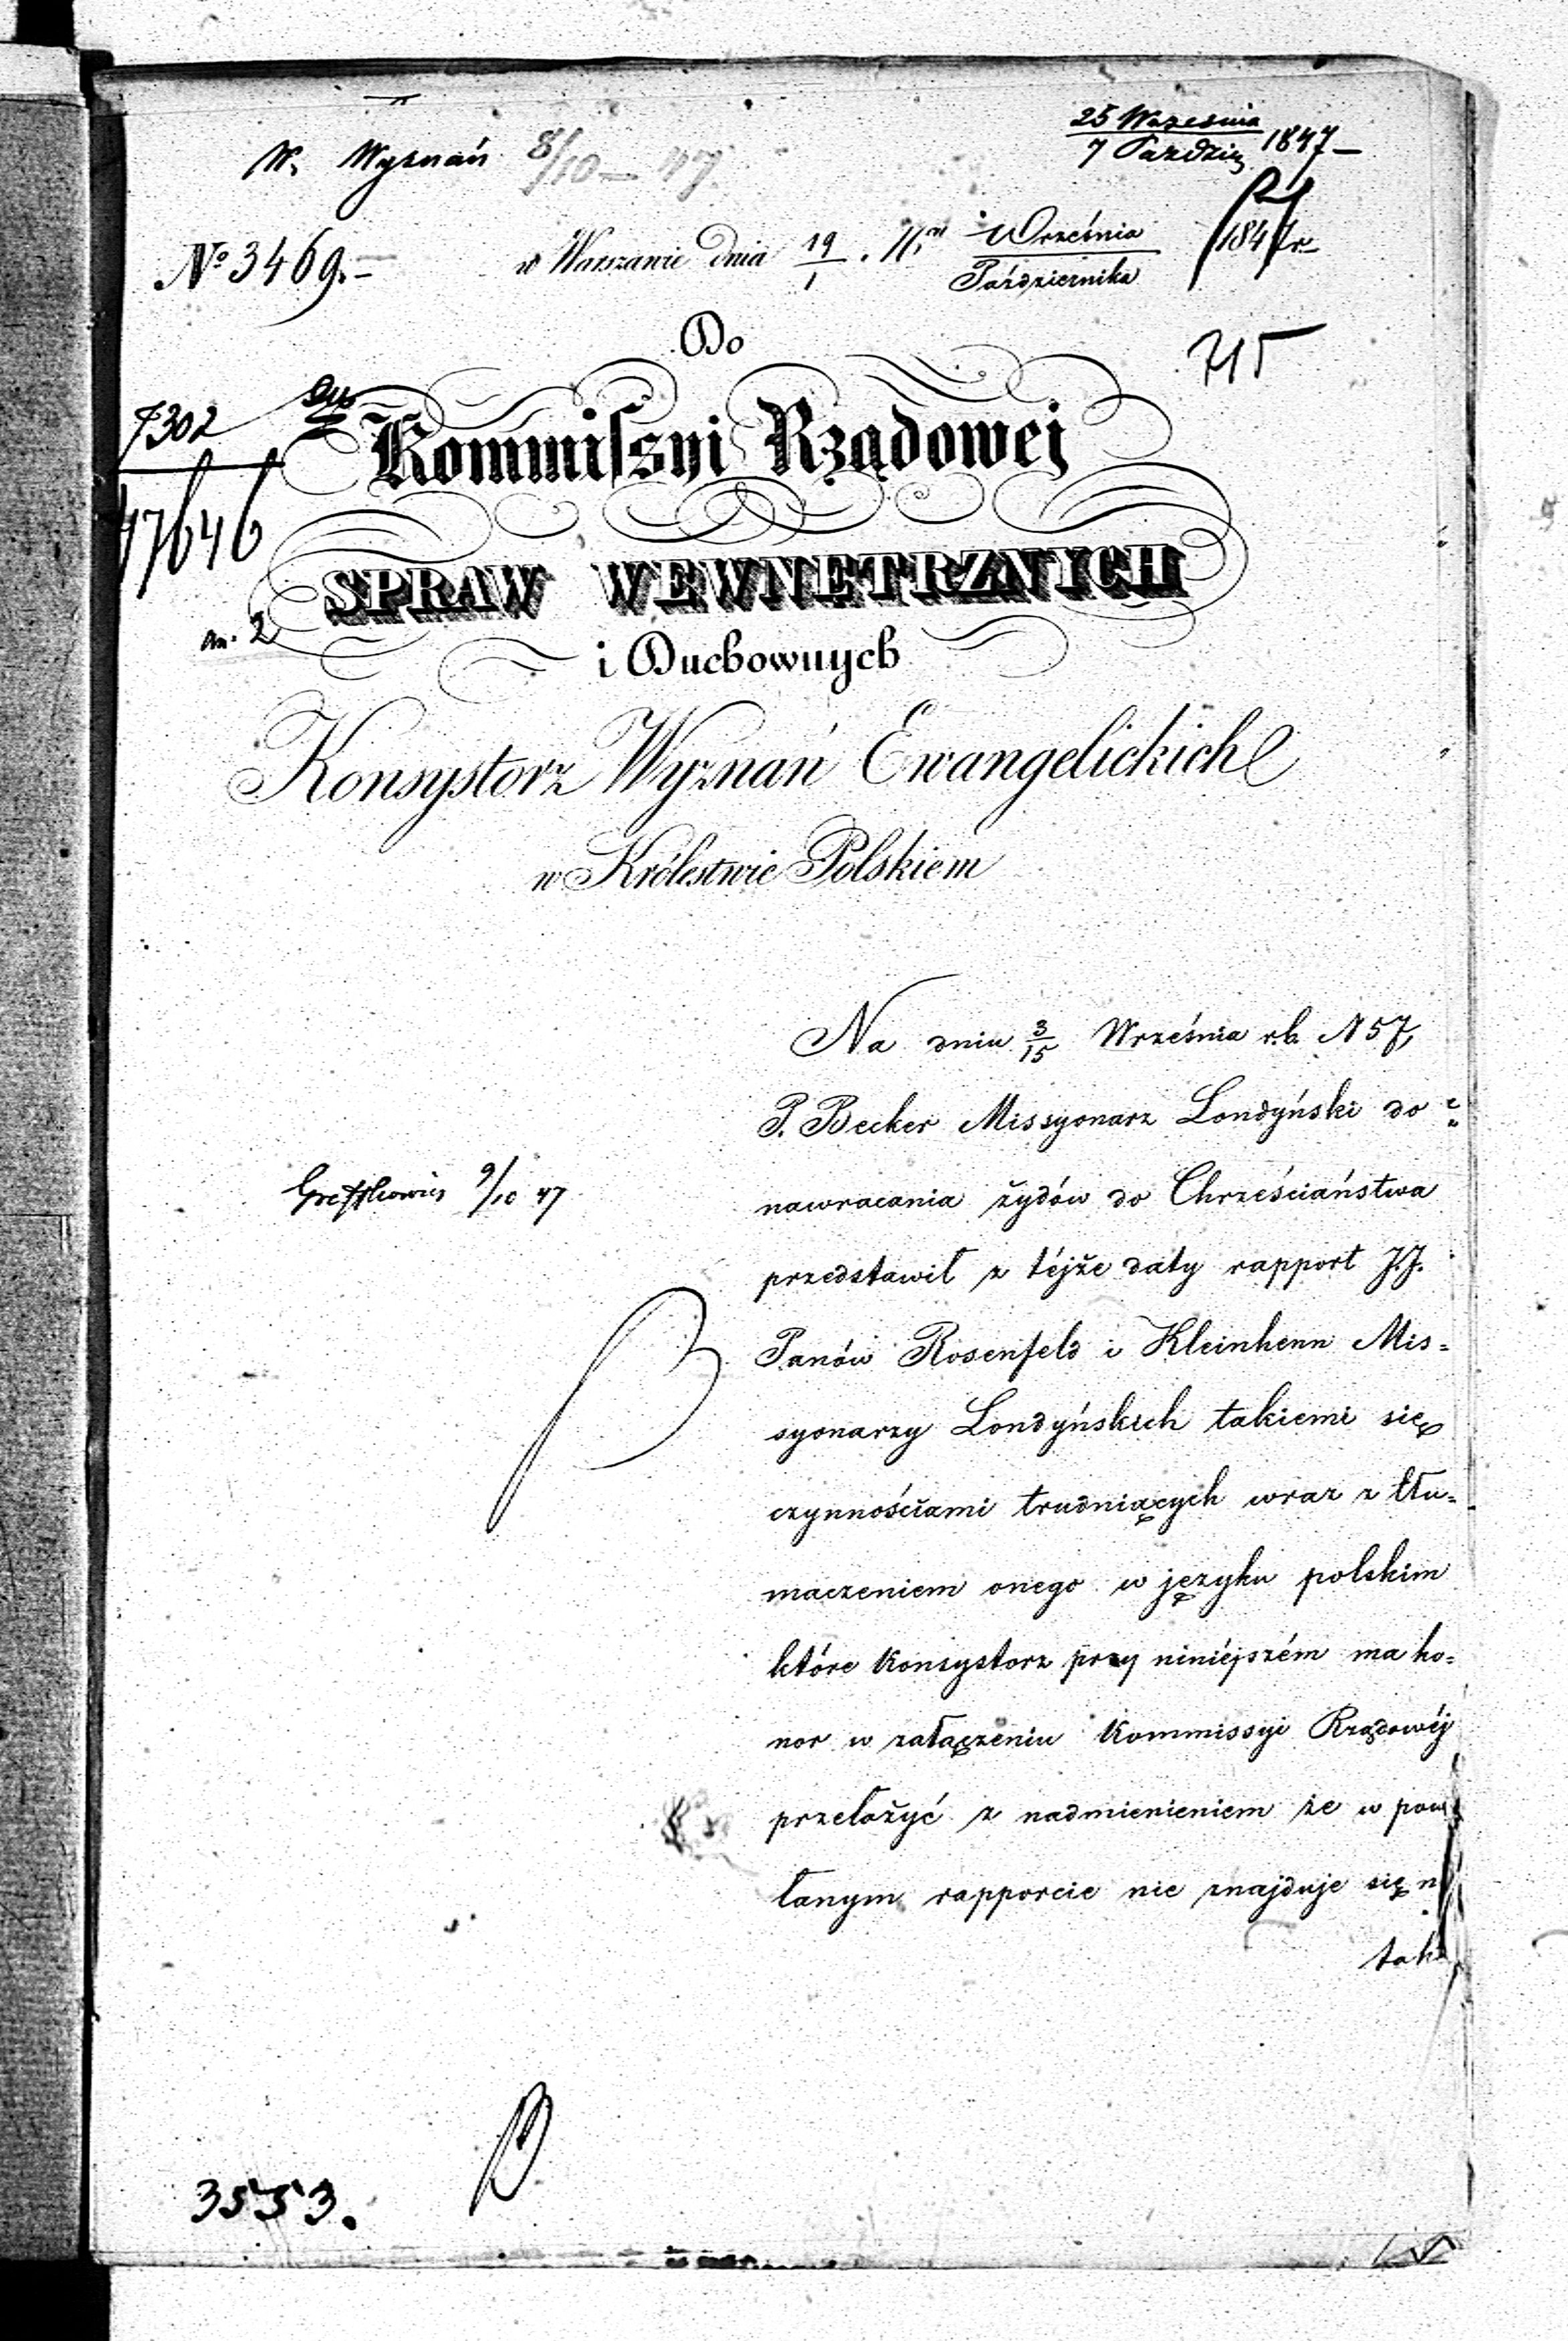 25 Września
7 Paździe 1847
W. Wyznań 8/10 – 47
№ 3469.–
w Warszawie dnia 19/1 Września/Października 1847 r.
715
Do
7302
Kommissyi Rządowej
17646
SPRAW WEWNĘTRZNYCH
an. 2
i Duchownych
Konsystorz Wyznań Ewangelickich
w Królestwie Polskiem
Na dniu 3/15 Września r.b. N 57,
P. Becker Missyonarz Londyński do
nawracania żydów do Chrześciaństwa
9/10 47
przedstawił z téjże daty rapport J.J.
Panów Rosenfeld i Kleinhenn Mis=
syonarzy Londyńskich takiemi się
czynnościami trudniących wraz z tłu=
maczeniem onego w języku polskim
które Konsystorz przy niniéjszém ma ho=
nor w załączeniu Kommissyi Rządowéj
przełożyć z nadmienieniem że w pow
łanym rapporcie nie znajduje się
tak
3553.